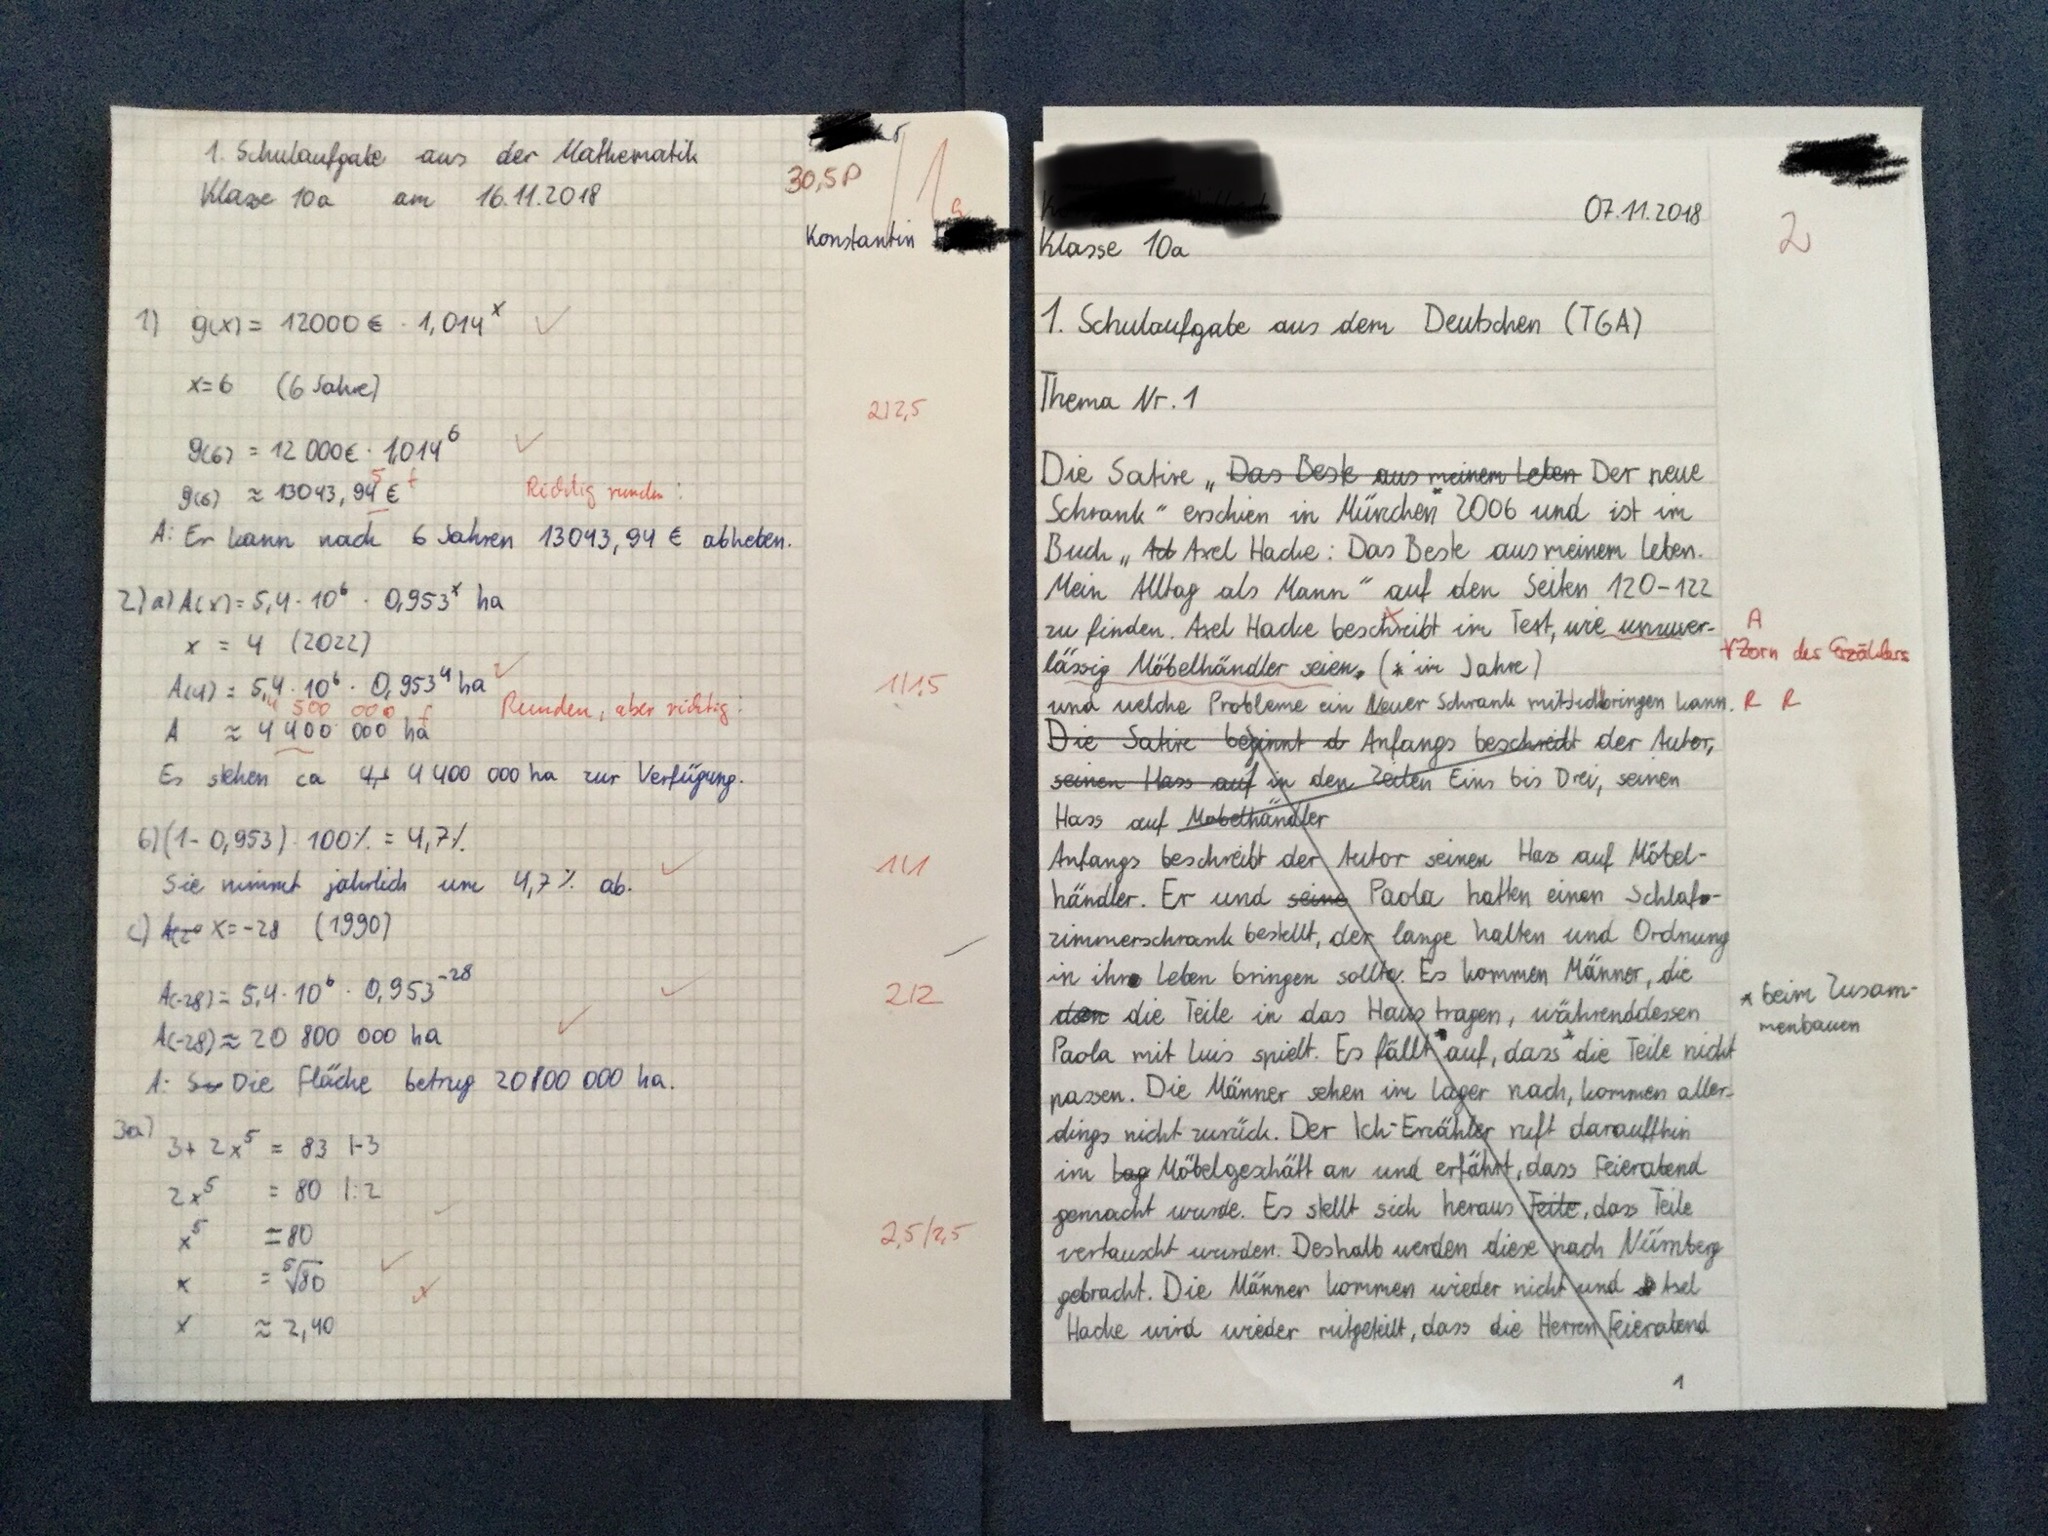 1. Schulaufgabe aus der Mathematik
Klasse 10a am 16.11.2018
30,5P
1
Konstantin
1) g(x) = 12000 € · 1,014^x
x=6 (6 Jahre)
2/2,5
g(6) = 12 000€ · 1,014^6
5 f
g(6) ≈ 13043,94 € Richtig runden!
A: Er kann nach 6 Jahren 13043,94 € abheben.
2) a) A(x) = 5,4 · 10^6 · 0,953^x ha
x = 4 (2022)
A(4) = 5,4 · 10^6 · 0,953^4 ha 1/1,5
4 500 000 f Runden, aber richtig!
A ≈ 4 400 000 ha
Es stehen ca 4 400 000 ha zur Verfügung.
b) (1 - 0,953) · 100% = 4,7%
Sie nimmt jährlich um 4,7% ab. 1/1
c) x = -28 (1990)
A(-28) = 5,4 · 10^6 · 0,953^-28 2/2
A(-28) ≈ 20 800 000 ha
A: Die Fläche betrug 20800 000 ha.
3a)
3 + 2x^5 = 83 |-3
2x^5 = 80 |:2
x^5 = 80 2,5/2,5
x = ⁵√80
x ≈ 2,40
07.11.2018
2
Klasse 10a
1. Schulaufgabe aus dem Deutschen (TGA)
Thema Nr. 1
Die Satire „Das Beste aus meinem Leben Der neue
Schrank“ erschien in München* 2006 und ist im
Buch „Ad Axel Hacke: Das Beste aus meinem Leben.
Mein Alltag als Mann“ auf den Seiten 120-122
zu finden. Axel Hacke beschreibt im Text, wie unzuver- A
lässig Möbelhändler seien. (* im Jahre) Zorn des Erzählers
und welche Probleme ein Neuer Schrank mitsichbringen kann. R R
Die Satire beginnt d Anfangs beschreibt der Autor,
seinen Hass auf in den Zeilen Eins bis Drei, seinen
Hass auf Mobelhändler
Anfangs beschreibt der Autor seinen Hass auf Möbel-
händler. Er und seine Paola hatten einen Schlaf-
zimmerschrank bestellt, der lange halten und Ordnung
in ihr Leben bringen sollte. Es kommen Männer, die
den die Teile in das Haus tragen, währenddessen
* beim Zusam-
menbauen
Paola mit Luis spielt. Es fällt auf, dass* die Teile nicht
passen. Die Männer sehen im Lager nach, kommen aller-
dings nicht zurück. Der Ich-Erzähler ruft darauffhin
im Lag Möbelgeschäft an und erfährt, dass Feierabend
gemacht wurde. Es stellt sich heraus Teile, dass Teile
vertauscht wurden. Deshalb werden diese nach Nürnberg
gebracht. Die Männer kommen wieder nicht und Axel
Hacke wird wieder mitgeteilt, dass die Herren Feierabend
1